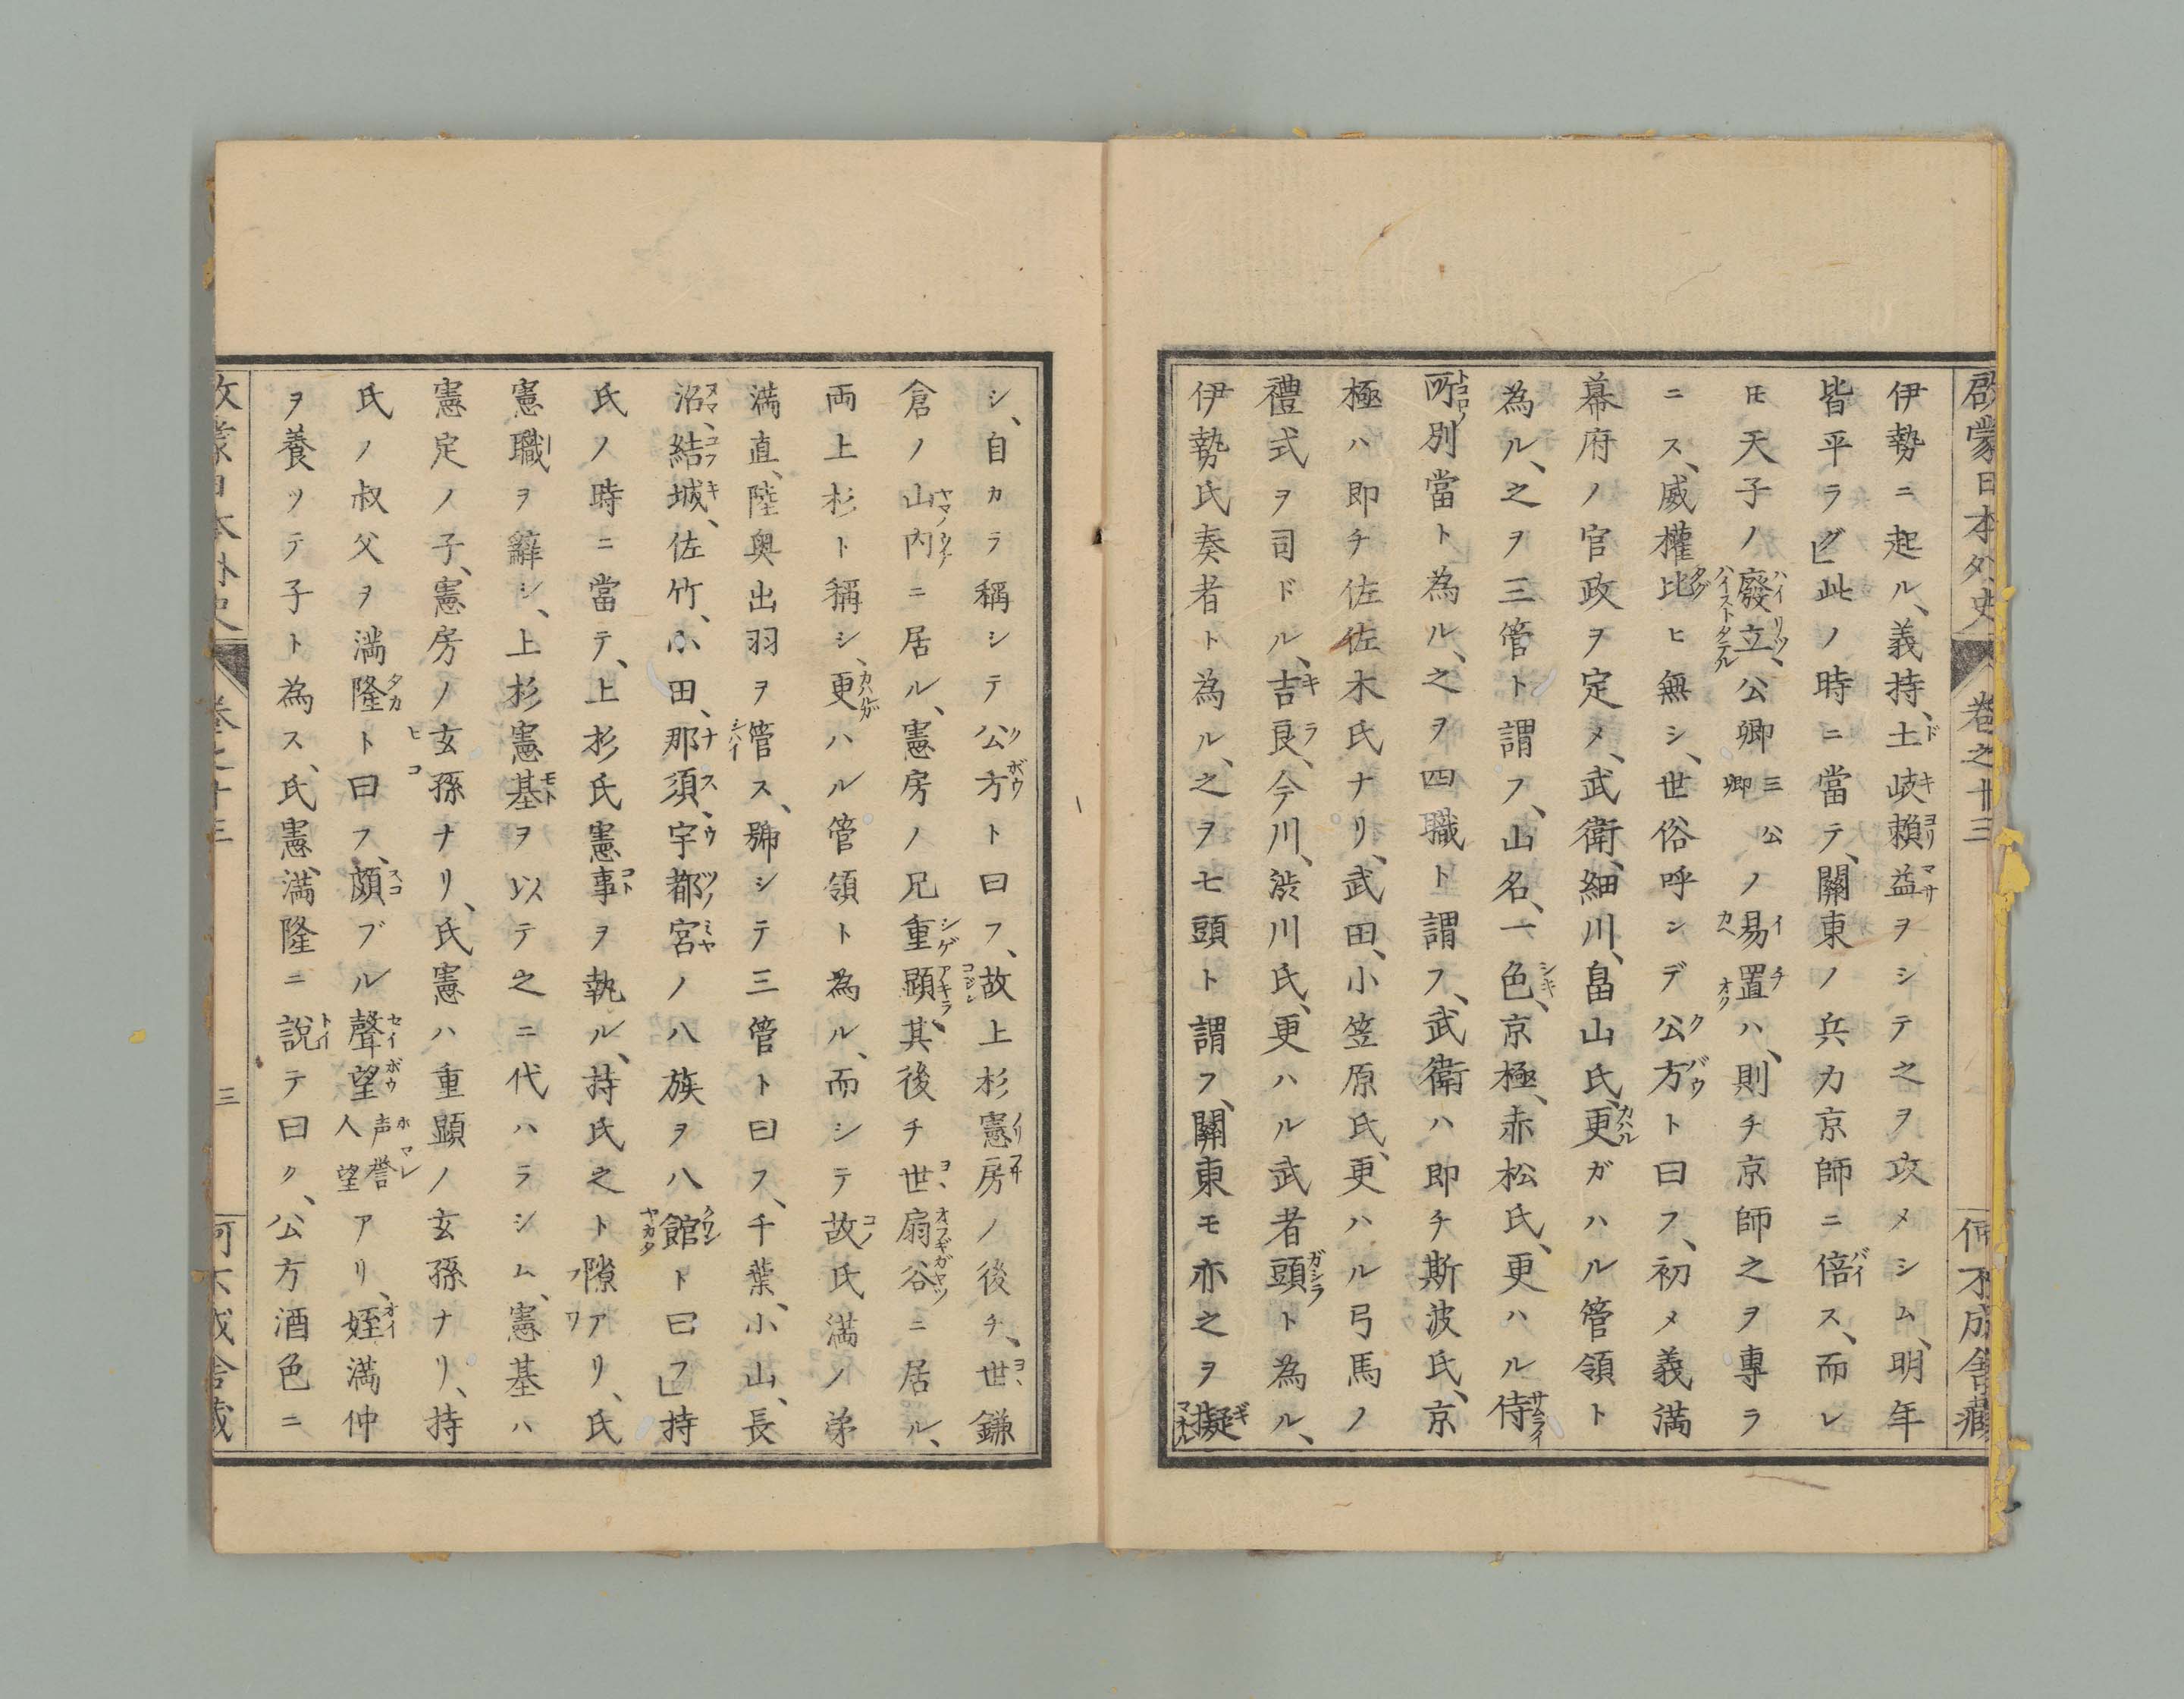 啓蒙日本外史　卷之十三　何不成舍藏
伊勢ニ起ル、義持、土岐賴益ヲシテ之ヲ攻メシム、明年
皆平ラグ」此ノ時ニ當テ、關東ノ兵力京師ニ倍ス、而レ
𪜈天子ノ廢立、公卿三公卿ノ易置ハ、則チ京師之ヲ專ラ
ニス、威權比ヒ無シ、世俗呼ンデ公方ト曰フ、初メ義満
幕府ノ官政ヲ定メ、武衛、細川、畠山氏、更ガハル管領ト
為ル、之ヲ三管ト謂フ、山名、一色、京極、赤松氏、更ハル侍
所別當ト為ル、之ヲ四職ト謂フ、武衛ハ即チ斯波氏、京
極ハ即チ佐佐木氏ナリ、武田、小笠原氏、更ハル弓馬ノ
禮式ヲ司ドル、吉良、今川、渋川氏、更ハル武者頭ト為ル、
伊勢氏奏者ト為ル、之ヲ七頭ト謂フ、關東モ亦之ヲ擬
シ、自カラ稱シテ公方ト曰フ、故上杉憲房ノ後チ、世鎌
倉ノ山内ニ居ル、憲房ノ兄重顕其後チ世扇谷ニ居ル、
両上杉ト稱シ、更ハル管領ト為ル、而シテ故氏満ノ弟
満直、陸奥出羽ヲ管ス、號シテ三管ト曰フ、千葉、小山、長
沼、結城、佐竹、小田、那須、宇都宮ノ八族ヲ八館ト曰フ」持
氏ノ時ニ當テ、上杉氏憲事ヲ執ル、持氏之ト隙アリ、氏
憲職ヲ辭シ、上杉憲基ヲ以テ之ニ代ハラシム、憲基ハ
憲定ノ子、憲房ノ玄孫ナリ、氏憲ハ重顕ノ玄孫ナリ、持
氏ノ叔父ヲ満隆ト曰フ、頗ブル聲望声誉人望アリ、姪満仲
ヲ養ツテ子ト為ス、氏憲、満隆ニ説テ曰ク、公方酒色ニ
三